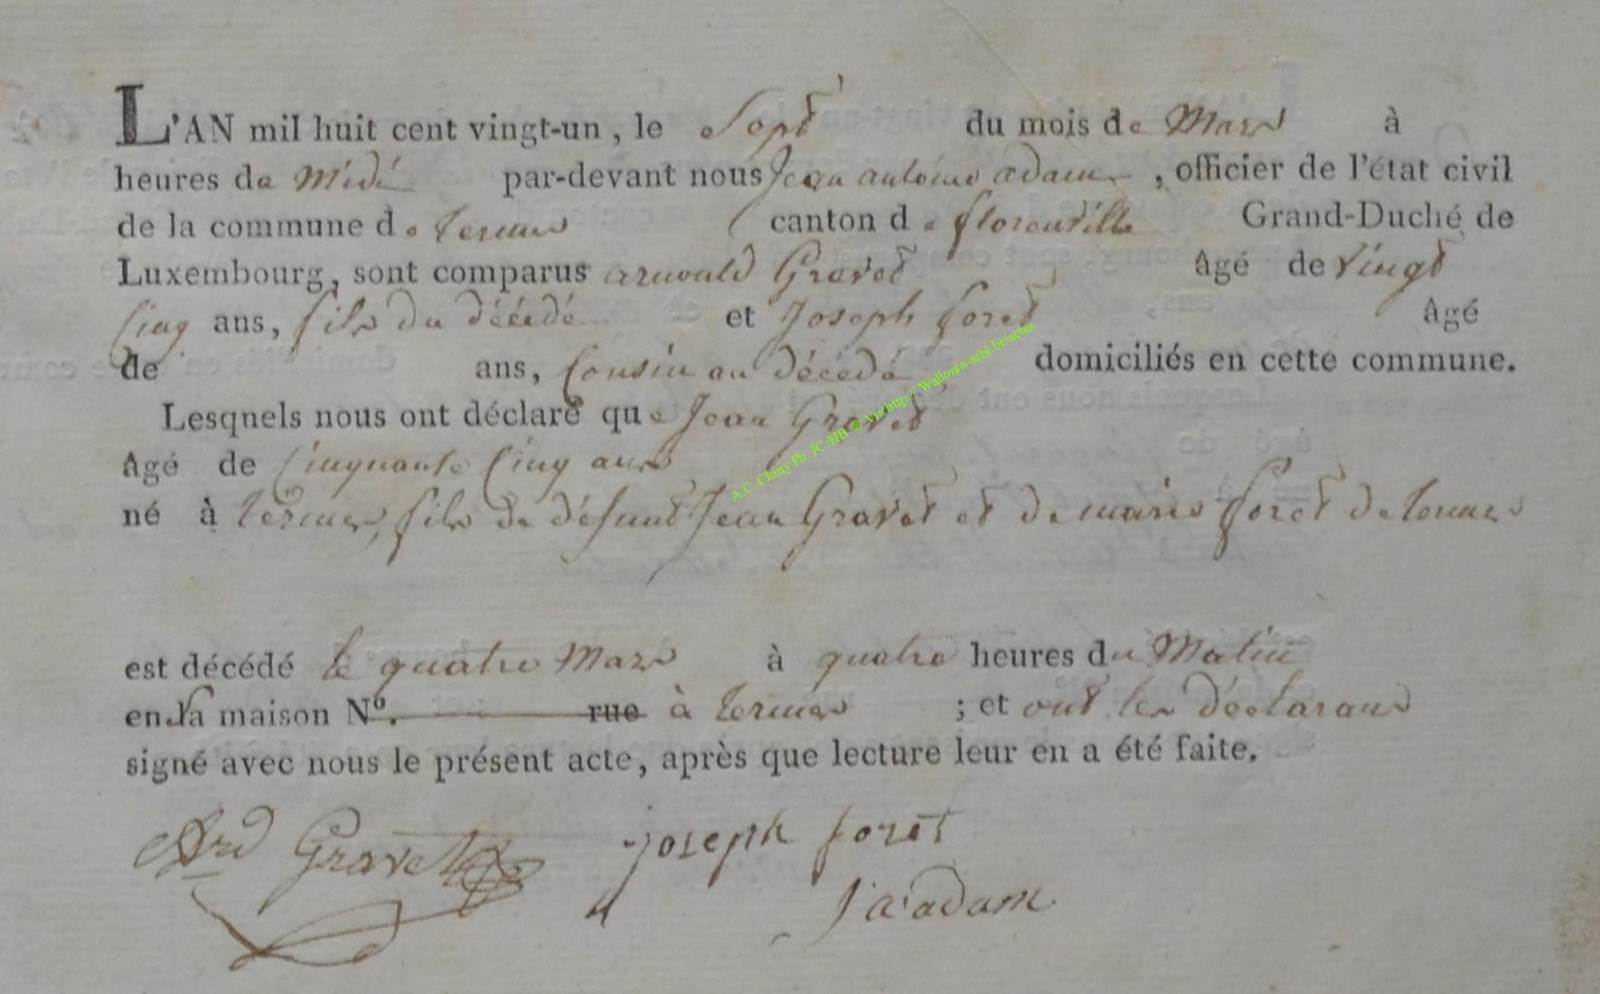 L'AN mil huit cent vingt-un, le Sept du mois de Mars à
heures de Midi par-devant nous Jean antoine adam, officier de l'état civil
de la commune de termes canton de florenville Grand-Duché de
Luxembourg, sont comparus arnould Gravet âgé de vingt
Cinq ans, fils du décédé et Joseph foret âgé
de ans, Cousin au décédé domiciliés en cette commune.
Lesqnels nous ont déclaré que Jean Gravet
âgé de Cinquante Cinq ans
né à termes, fils de défunt Jean Gravet et de marie foret de termes
est décédé le quatre Mars à quatre heures du Matin
en sa maison Nº. rue à termes ; et ont les déclarans
signé avec nous le présent acte, après que lecture leur en a été faite.
Ard Gravet joseph foret
j a adam
A.C. Chiny Ph JC/HB @ via http// Wallonia-asbl.be/actes